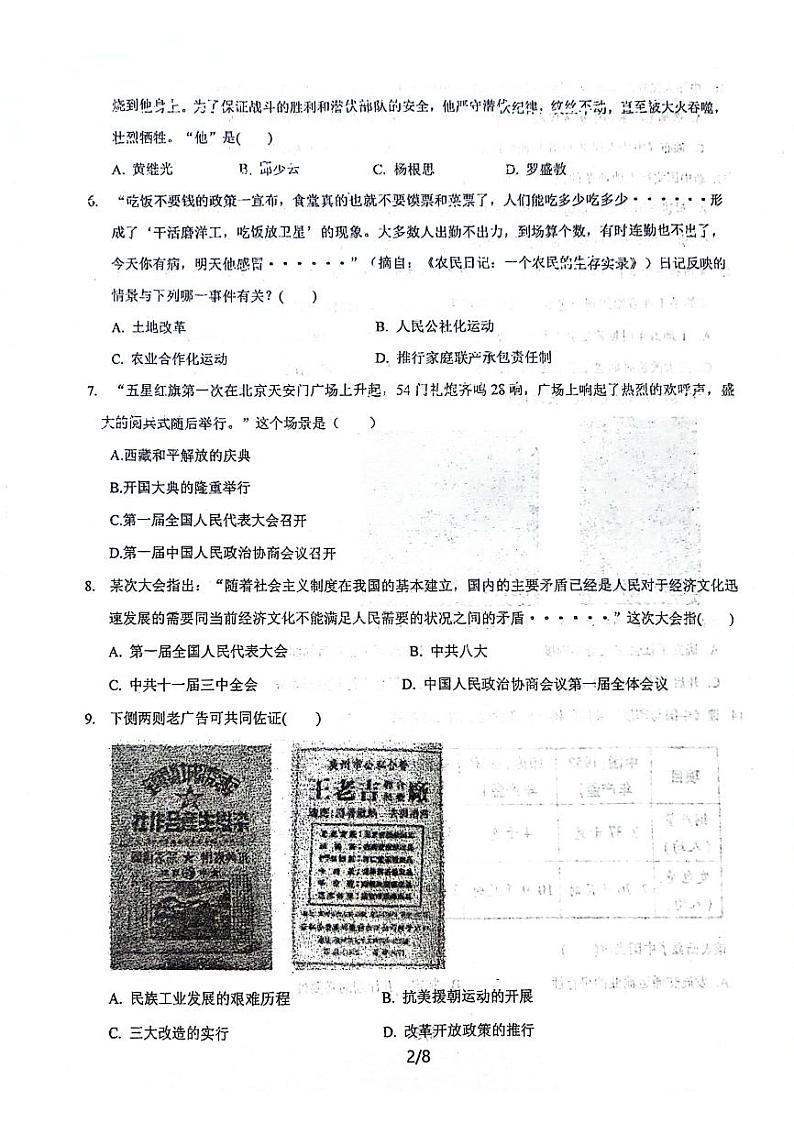 烧到他身上。为了保证战斗的胜利和潜伏部队的安全，他严守潜伏纪律，纹丝不动，直至被大火吞噬，
壮烈牺牲。“他”是(　　)
A. 黄继光　B. 邱少云　C. 杨根思　D. 罗盛教
6. “吃饭不要钱的政策一宣布，食堂真的也就不要馍票和菜票了，人们能吃多少吃多少······形
成了‘干活磨洋工，吃饭放卫星’的现象。大多数人出勤不出力，到场算个数，有时连勤也不出了，
今天你有病，明天他感冒······”（摘自：《农民日记：一个农民的生存实录》）日记反映的
情景与下列哪一事件有关？(　　)
A. 土地改革　B. 人民公社化运动
C. 农业合作化运动　D. 推行家庭联产承包责任制
7. “五星红旗第一次在北京天安门广场上升起，54 门礼炮齐鸣 28 响，广场上响起了热烈的欢呼声，盛
大的阅兵式随后举行。”这个场景是（　　）
A.西藏和平解放的庆典
B.开国大典的隆重举行
C.第一届全国人民代表大会召开
D.第一届中国人民政治协商会议召开
8. 某次大会指出：“随着社会主义制度在我国的基本建立，国内的主要矛盾已经是人民对于经济文化迅
速发展的需要同当前经济文化不能满足人民需要的状况之间的矛盾······”这次大会指(　　)
A. 第一届全国人民代表大会　B. 中共八大
C. 中共十一届三中全会　D. 中国人民政治协商会议第一届全体会议
9. 下侧两则老广告可共同佐证(　　)
社作合產生
廣州市公私合營
王老吉
A. 民族工业发展的艰难历程　B. 抗美援朝运动的开展
C. 三大改造的实行　D. 改革开放政策的推行
2/8